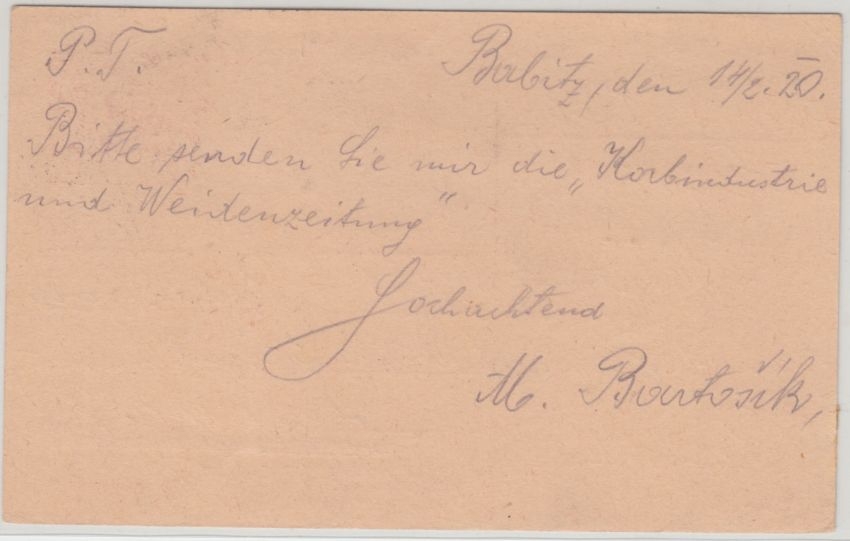 P. T. Babitz, den 14/2. 20.
Bitte senden Sie mir die „Korbindustrie
und Weidenzeitung"
Hochachtend
M. Bartošík,